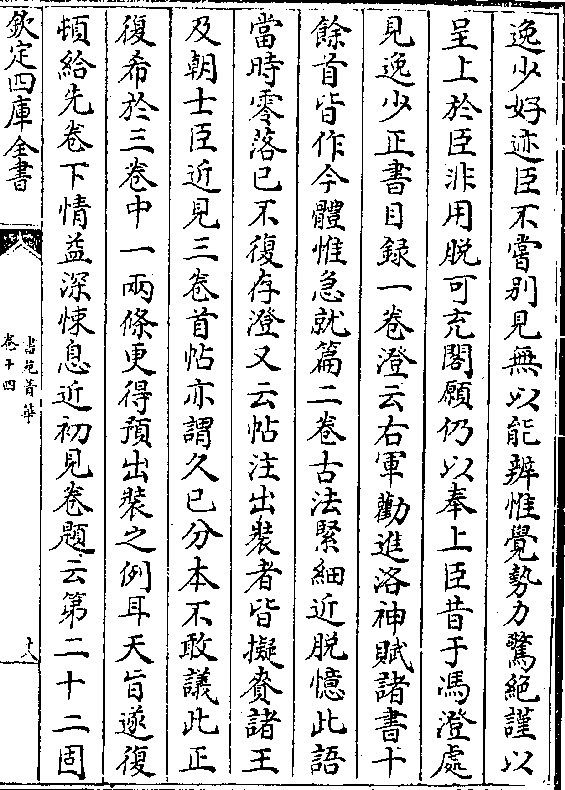 逸少好迹臣不嘗別見無以能辨惟覺勢力驚絶謹以
呈上於臣非用脱可充閣願仍以奉上臣昔于馮澄處
見逸少正書目録一卷澄云右軍勸進洛神賦諸書十
餘首皆作今體惟急就篇二卷古法緊細近脱憶此語
當時零落已不復存澄又云帖注出裝者皆擬賚諸王
及朝士臣近見三卷首帖亦謂久已分本不敢議此正
復希於三卷中一兩條更得預出裝之例耳天旨遂復
頓給先卷下情益深悚息近初見卷題云第二十二固
欽定四庫全書
書苑菁華
卷十四
十八